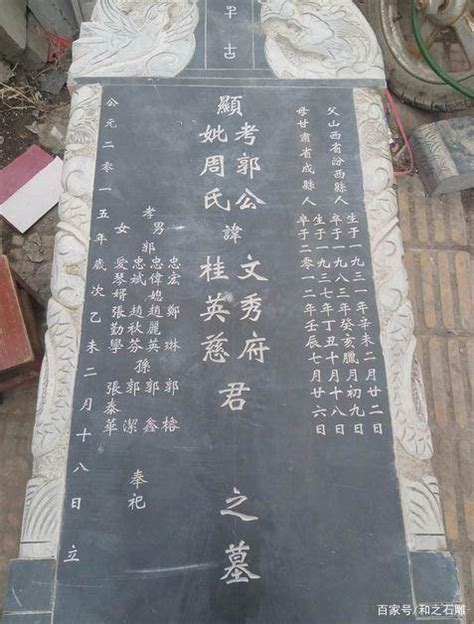 古
父山西省汾西縣人
生于一九三一年辛未二月廿二日
卒于一九八三年癸亥臘月初九日
母甘肅省成縣人
生于一九三七年丁丑十月十八日
卒于二零一二年壬辰七月廿六日
顯
考郭公
妣周氏
諱
文秀府
桂英慈
君
之墓
孝男
郭
忠宏 鄭琳 郭榕
忠偉媳趙麗英 郭鑫
忠斌 趙秋芬孫郭潔
女 愛琴婿張勤學 張泰華
奉祀
公元二零一五年歲次乙未二月十八日立
百家号/和之石雕